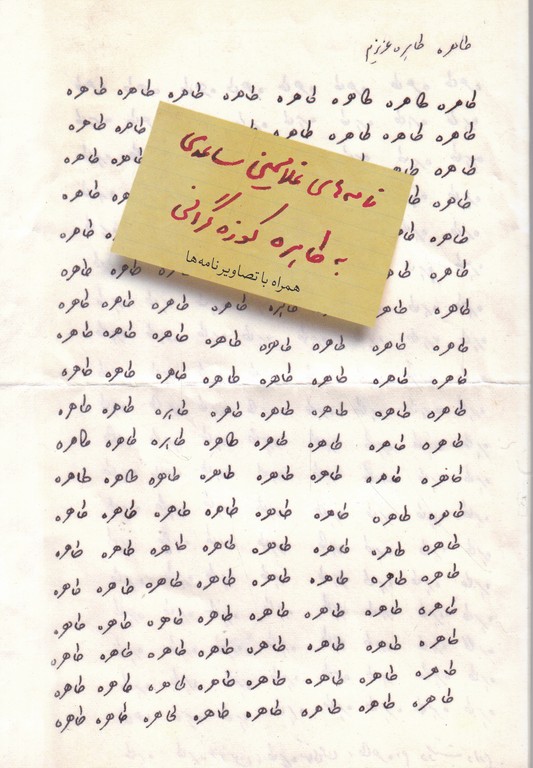 طاهره طاهره عزیزم
طاهره طاهره طاهره طاهره طاهره طاهره طاهره طاهره
طاهره طاهره طاهره طاهره طاهره طاهره
طاهره طاهره طاهره طاهره
طاهره طاهره طاهره
طاهره طاهره
طاهره طاهره
طاهره طاهره طاهره طاهره طاهره طاهره طاهره
طاهره طاهره طاهره طاهره طاهره طاهره طاهره طاهره
طاهره طاهره طاهره طاهره طاهره طاهره طاهره طاهره
طاهره طاهره طاهره طاهره طاهره طاهره طاهره طاهره
طاهره طاهره طاهره طاهره طاهره طاهره طاهره طاهره
طاهره طاهره طاهره طاهره طاهره طاهره طاهره طاهره
طاهره طاهره طاهره طاهره طاهره طاهره طاهره طاهره
طاهره طاهره طاهره طاهره طاهره طاهره طاهره طاهره
طاهره طاهره طاهره طاهره طاهره طاهره طاهره طاهره
طاهره طاهره طاهره طاهره طاهره طاهره طاهره طاهره
طاهره طاهره طاهره طاهره طاهره طاهره طاهره طاهره
طاهره طاهره طاهره طاهره طاهره طاهره طاهره طاهره
طاهره طاهره طاهره طاهره طاهره طاهره طاهره طاهره
نامه‌های غلامحسین ساعدی
به طاهره کوزه‌گرانی
همراه با تصاویر نامه‌ها